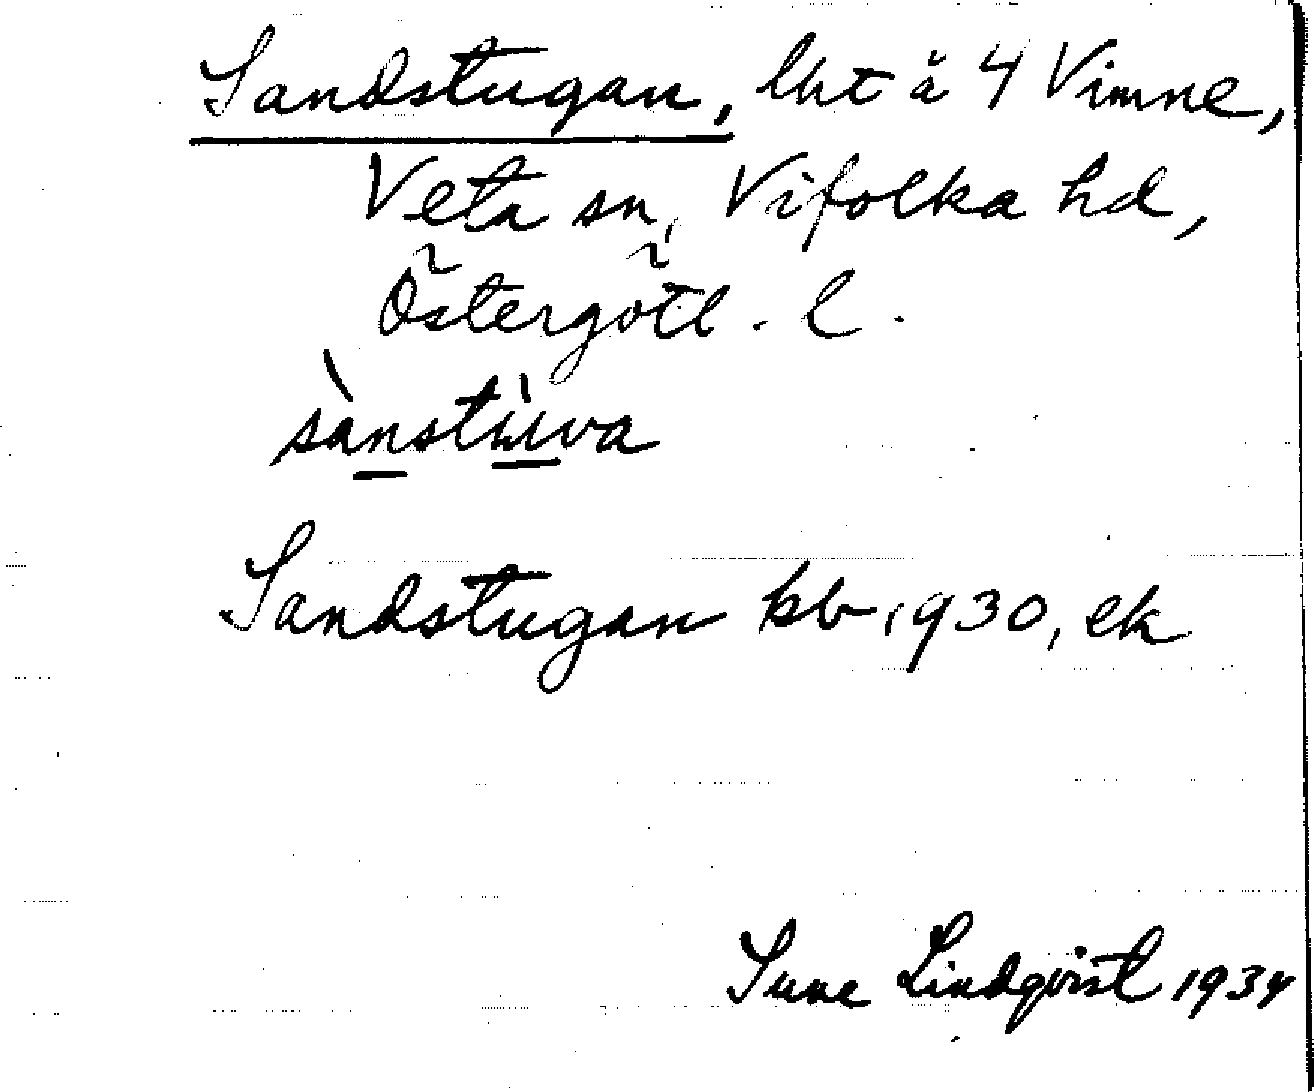 Sandstugan, lht å 4 Vimne,
Veta sn, Vifolka hd,
Östergötl. l.
sànstùwa
Sandstugan kb 1930, ek
Sune Lindqvist 1934